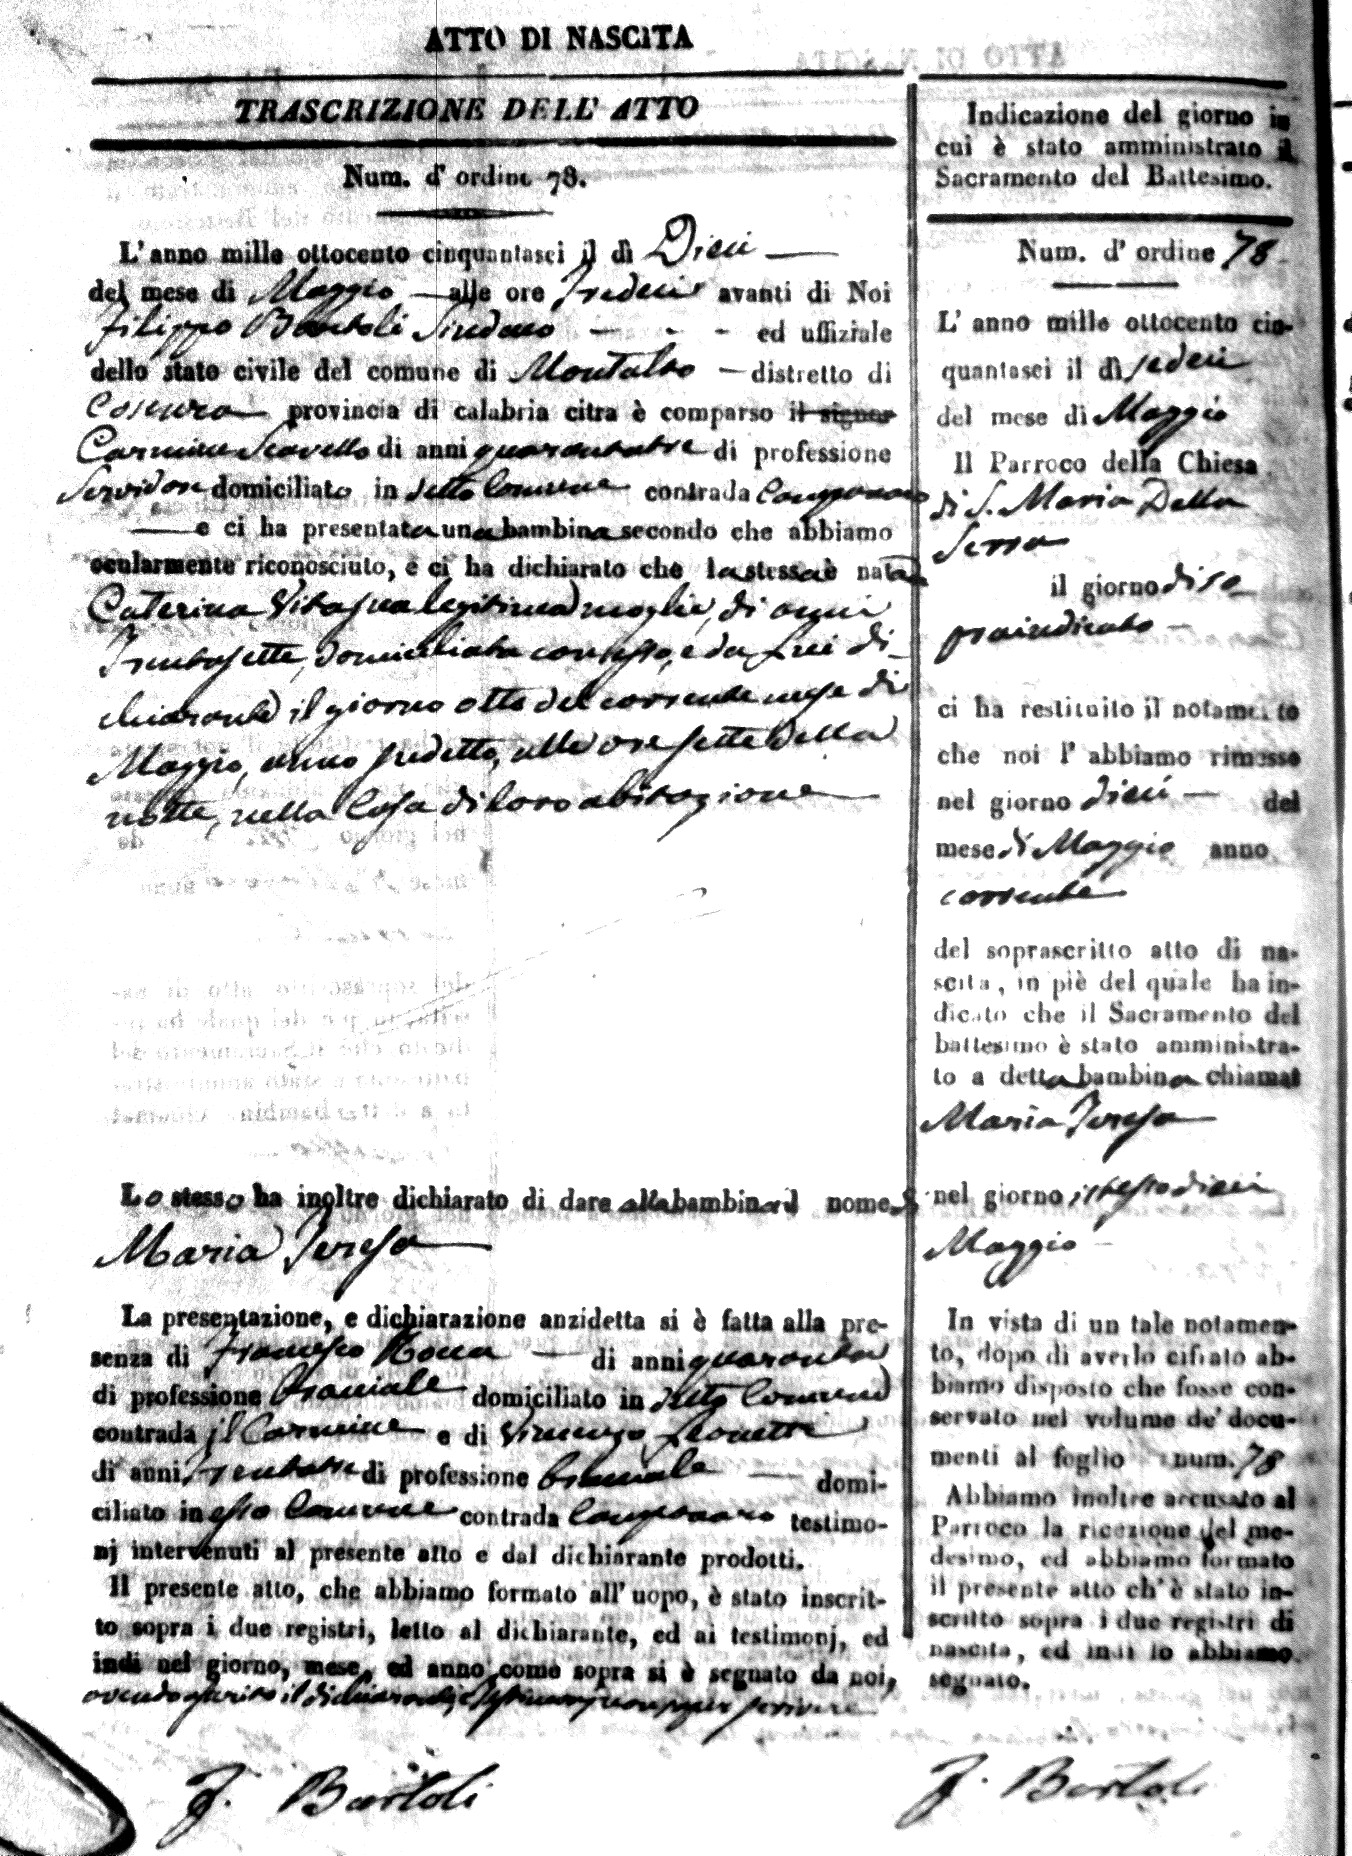 ATTO DI NASCITA
TRASCRIZIONE DELL' ATTO
Num. d' ordine 78.
L' anno mille ottocento cinquantasei il dì Dieci
del mese di Maggio alle ore tredeci avanti di Noi
Filippo Bartoli Sindaco ed uffiziale
dello stato civile del comune di Montalto distretto di
Cosenza provincia di calabria citra è comparso il signor
Carmine Scavello di anni quarantatre di professione
Servidore domiciliato in detto Comune contrada
e ci ha presentata una bambina secondo che abbiamo
ocularmente riconosciuto, e ci ha dichiarato che la stessa è nata da
Caterina legitima moglie, di anni
Trentasette, domiciliata con esso, e da Lui di-
chiarante il giorno otto del corrente mese di
Maggio, anno sudetto, alle ore sette della
notte, nella Casa di loro abitazione
Lo stesso ha inoltre dichiarato di dare alla bambina il nome di
Maria Teresa
La presentazione, e dichiarazione anzidetta si è fatta alla pre-
senza di Francesco di anni quaranta
di professione Braciale domiciliato in detto Comune
contrada il Carmine e di Vincenzo
di anni trentatre di professione braciale domi-
ciliato in esso Comune contrada testimo-
nj intervenuti al presente atto e dal dichiarante prodotti.
Il presente atto, che abbiamo formato all' uopo, è stato inscrit-
to sopra i due registri, letto al dichiarante, ed ai testimonj, ed
indi nel giorno, mese, ed anno come sopra si è segnato da noi,
avendo il dichiarante, e testimonj non saper scrivere
F. Bartoli
Indicazione del giorno in
cui è stato amministrato il
Sacramento del Battesimo.
Num. d' ordine 78
L' anno mille ottocento cin-
quantasei il dì sedeci
del mese di Maggio
Il Parroco della Chiesa
di S. Maria Della
Serra
il giorno di so-
praindicato
ci ha restituito il notamento
che noi l' abbiamo rimesso
nel giorno dieci del
mese di Maggio anno
corrente
del soprascritto atto di na-
scita, in piè del quale ha in-
dicato che il Sacramento del
battesimo è stato amministra-
to a detta bambina chiamat
Maria Teresa
nel giorno istesso dieci
Maggio
In vista di un tale notamen-
to, dopo di averlo cifrato ab-
biamo disposto che fosse con-
servato nel volume de' docu-
menti al foglio num. 78
Abbiamo inoltre accusato al
Parroco la ricezione del me-
desimo, ed abbiamo formato
il presente atto ch' è stato in-
scritto sopra i due registri di
nascita, ed indi lo abbiamo
segnato.
F. Bartoli